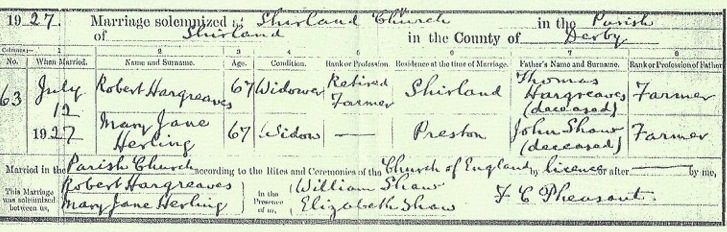 1927. Marriage solemnized at Shirland Church in the Parish
of Shirland in the County of Derby
Columns:— 1 2 3 4 5 6 7 8
No. When Married. Name and Surname. Age. Condition. Rank or Profession. Residence at the time of Marriage. Father's Name and Surname. Rank or Profession of Father
63 July 12 1927 Robert Hargreaves 67 Widower Retired Farmer Shirland Thomas Hargreaves (deceased) Farmer
Mary Jane Herling 67 Widow — Preston John Shaw (deceased) Farmer
Married in the Parish Church according to the Rites and Ceremonies of the Church of England by licence or after — by me,
This Marriage was solemnized between us, Robert Hargreaves Mary Jane Herling In the Presence of us, William Shaw Elizabeth Shaw F C Pheasant